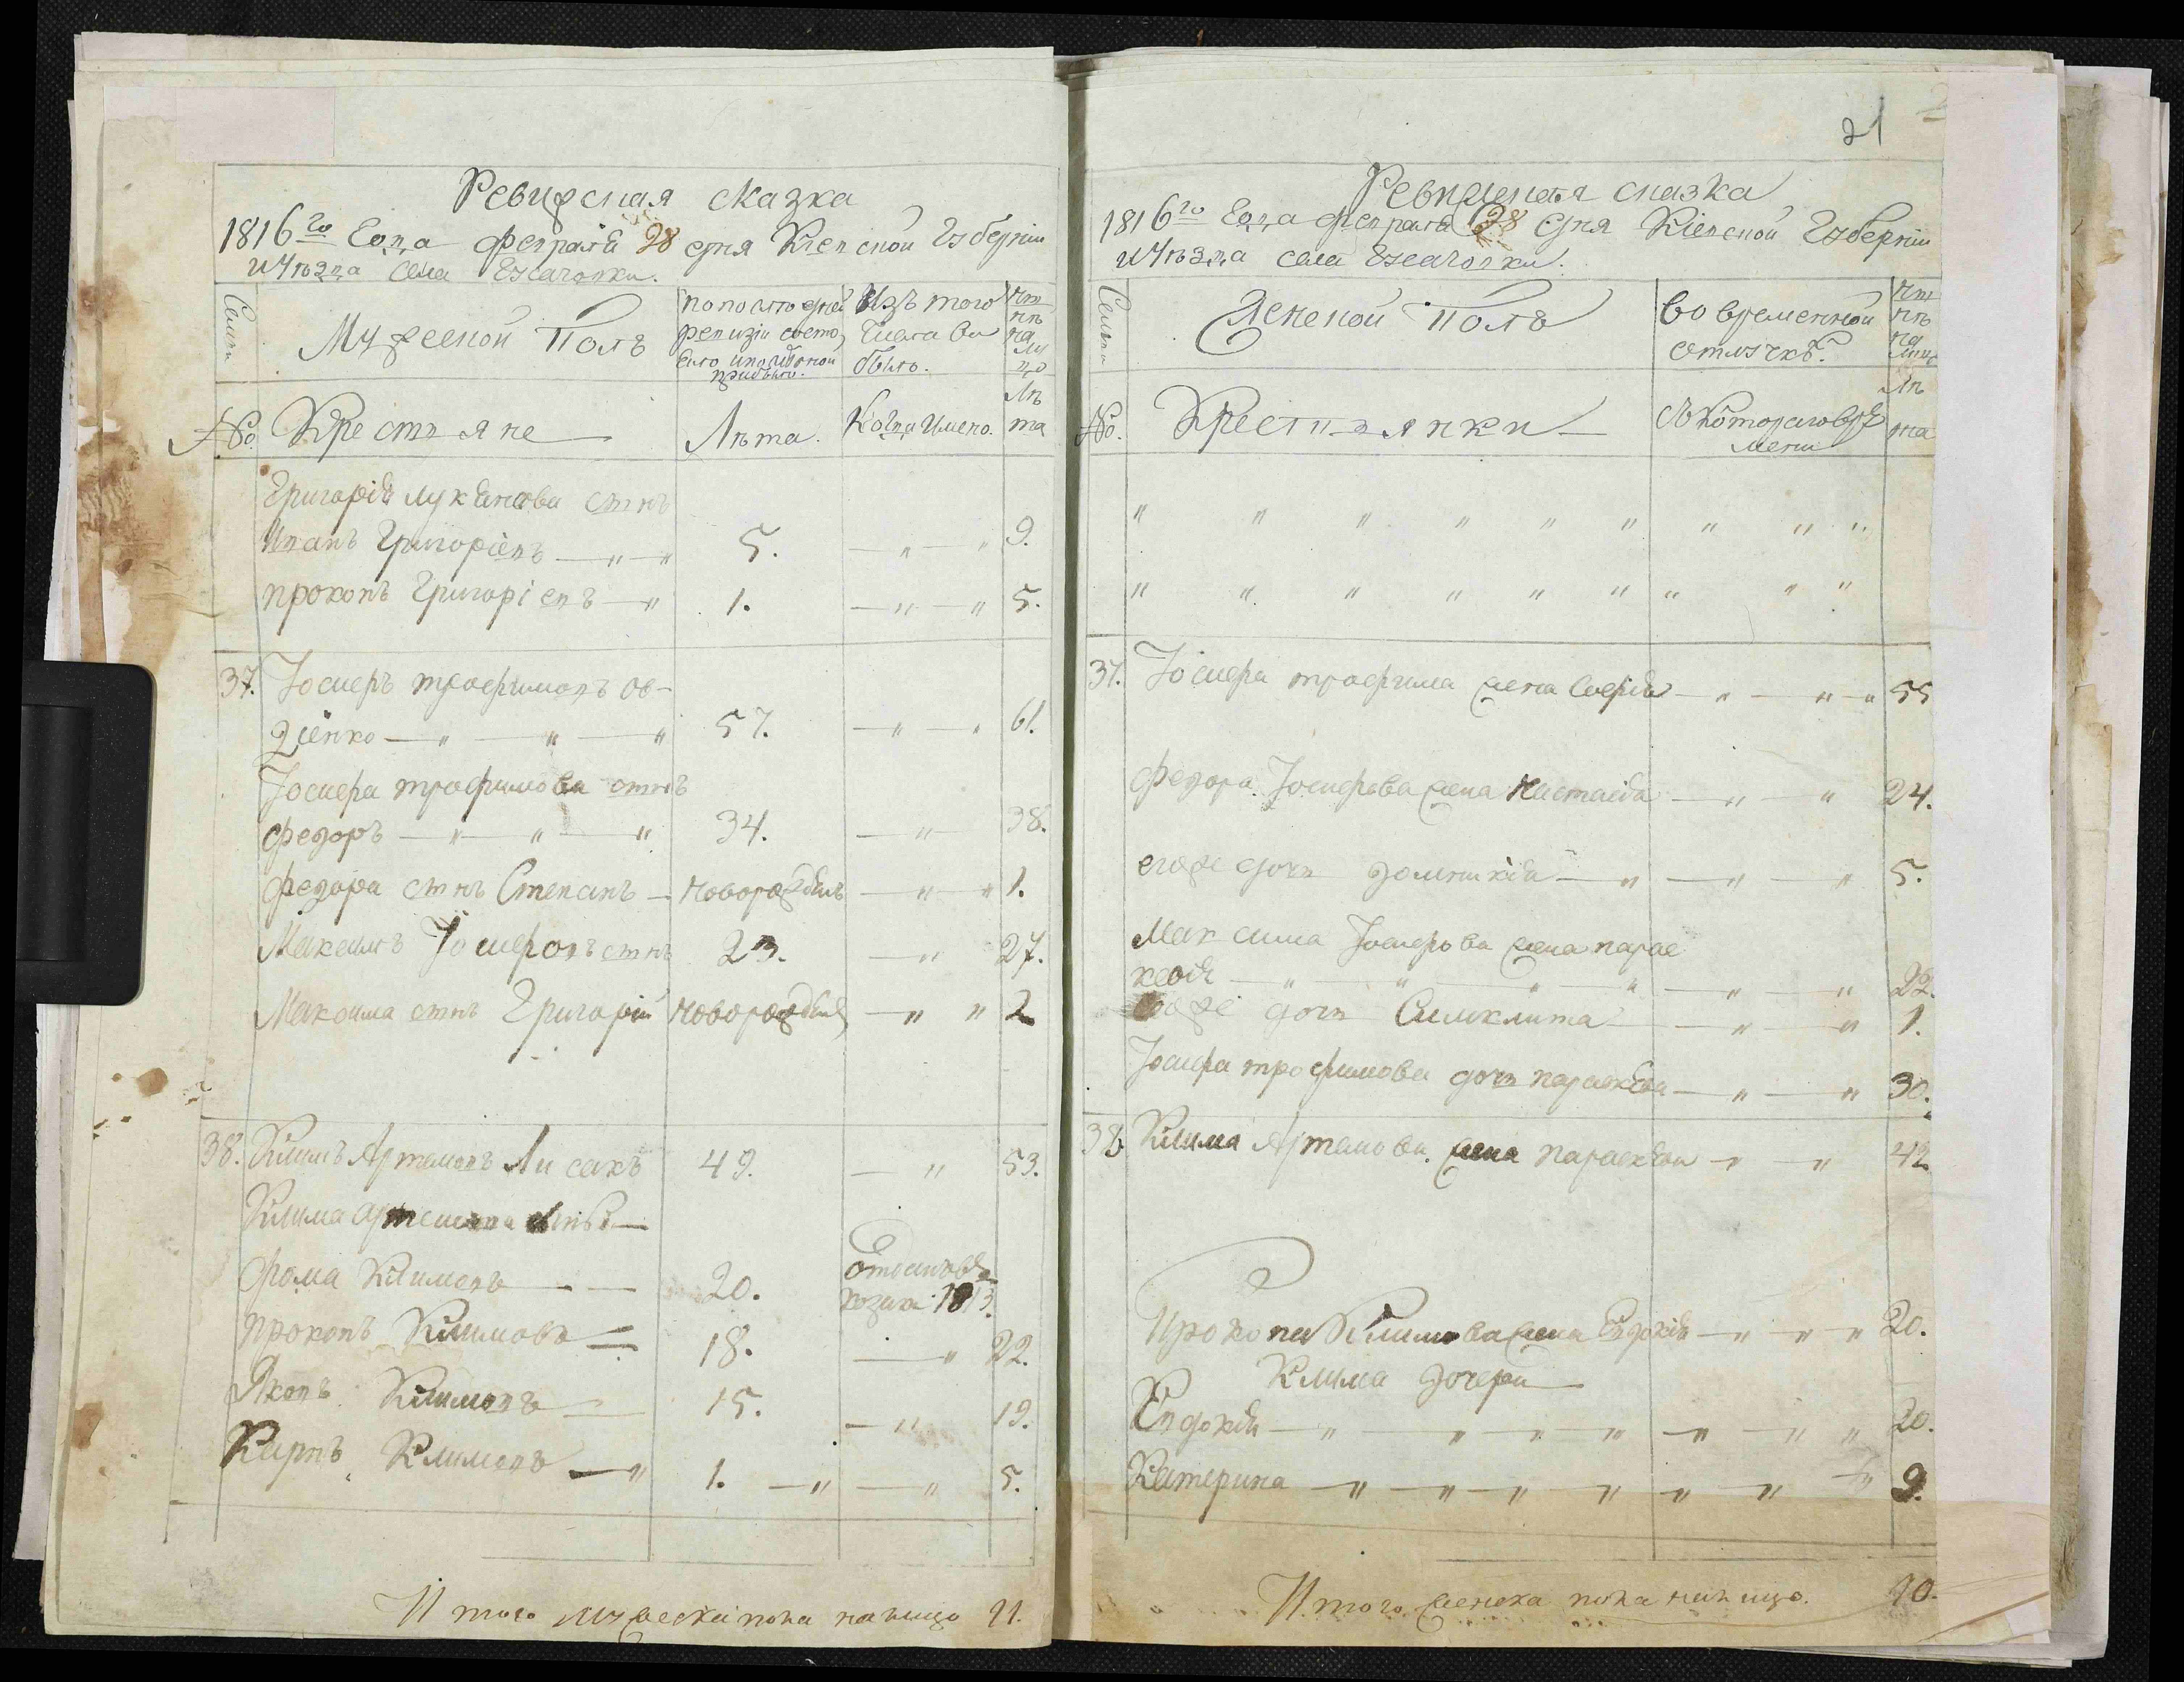 Ревизская сказка
1816го Года февраля 28 дня Кіевской Губерніи
и Уѣзда села
Семьи
Мужеской Полъ
по последней
ревизіи состо
яло и после оной
прибыло.
Изъ того
числа вы
было.
Нынѣ
на
ли
цо
№
Крестьяне
Лѣта.
Когда имено.
Лѣ
та
Григорія Лукьянова сынъ
Иванъ Григоріевъ 5. 9.
Прокопъ Григоріевъ 1. 5.
37. Іосифъ Трофимовъ Ов-
діенко 57. 61.
Іосифа Трофимова сынъ
Федоръ 34. 38.
Федора сынъ Степанъ новорожденъ 1.
Максимъ Іосифовъ сынъ 23. 27.
Максима сынъ Григорій новорожденъ 2
38. Климъ Артемовъ Лисакъ 49. 53.
Клима Артемова сынъ
Фома Климовъ 20. 1813.
Прокопъ Климовъ 18. 22.
Яковъ Климовъ 15. 19.
Карпъ Климовъ 1. 5.
Итого мужеска пола налицо 11.
21
Ревизская сказка
1816го Года февраля 28 дня Кіевской Губерніи
и Уѣзда села
Семьи
Женской Полъ
Во временной
отлучкѣ.
на
лицо
№.
Крестьянки
Съ котораго вре
мени
Лѣ
та
37. Іосифа Трофима жена Софія 55
Федора Іосифова жена Настасія 24.
егоже дочь Домникія 5.
Максима Іосифова жена Парас
кевія 22.
егоже дочь Симклита 1.
Іосифа Трофимова дочь Параскева 30.
38 Клима Артемова жена Параскева 42
Прокопа Климова жена Евдокія 20.
Клима дочери
Евдокія 20.
Катерина 9.
Итого женска пола налицо. 10.